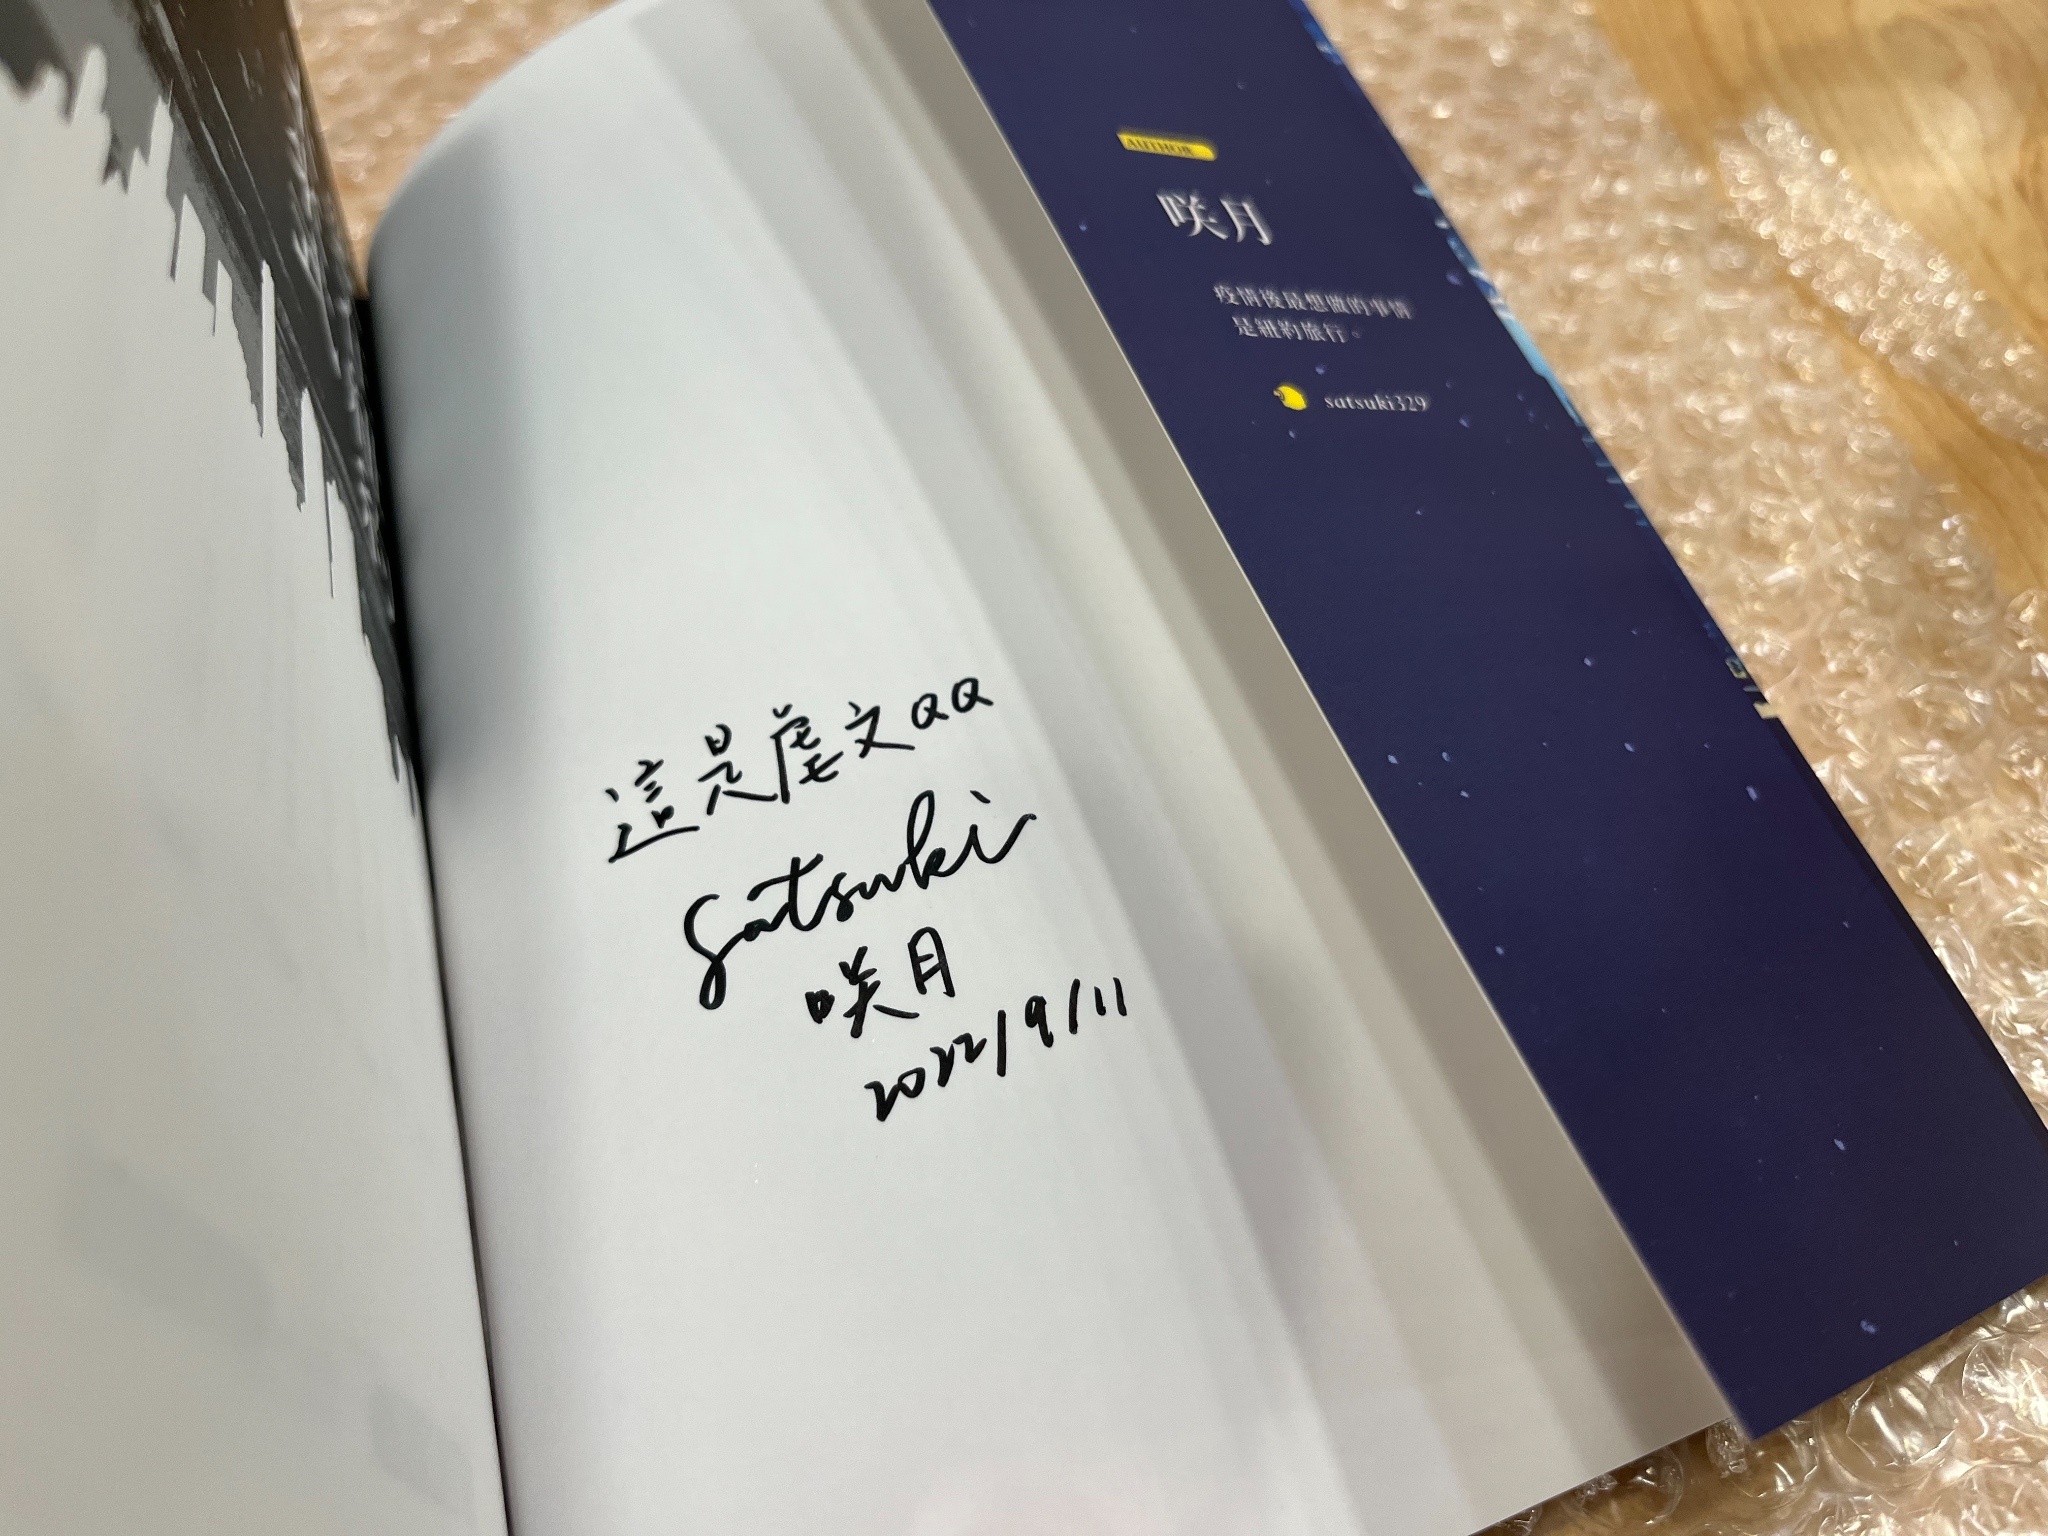 這是虐文QQ
Satsuki
咲月
2022/9/11
AUTHOR
咲月
疫情後最想做的事情
是紐約旅行。
satsuki329